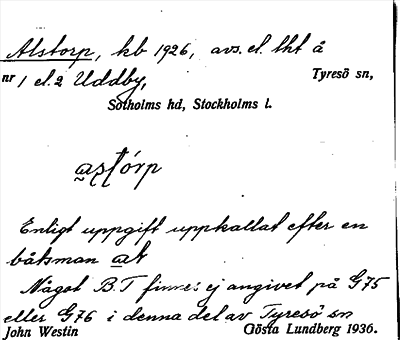 Alstorp, kb 1926, avs. el. tht å
nr 1 el. 2 Uddby, Tyresö sn,
Sotholms hd, Stockholms l.
as̩t̩órp
Enligt uppgift uppkallat efter en
båtsman al
Något B.T finnes ej angivet på G75
eller G76 i denna del av Tyresö sn
John Westin Gösta Lundberg 1936.